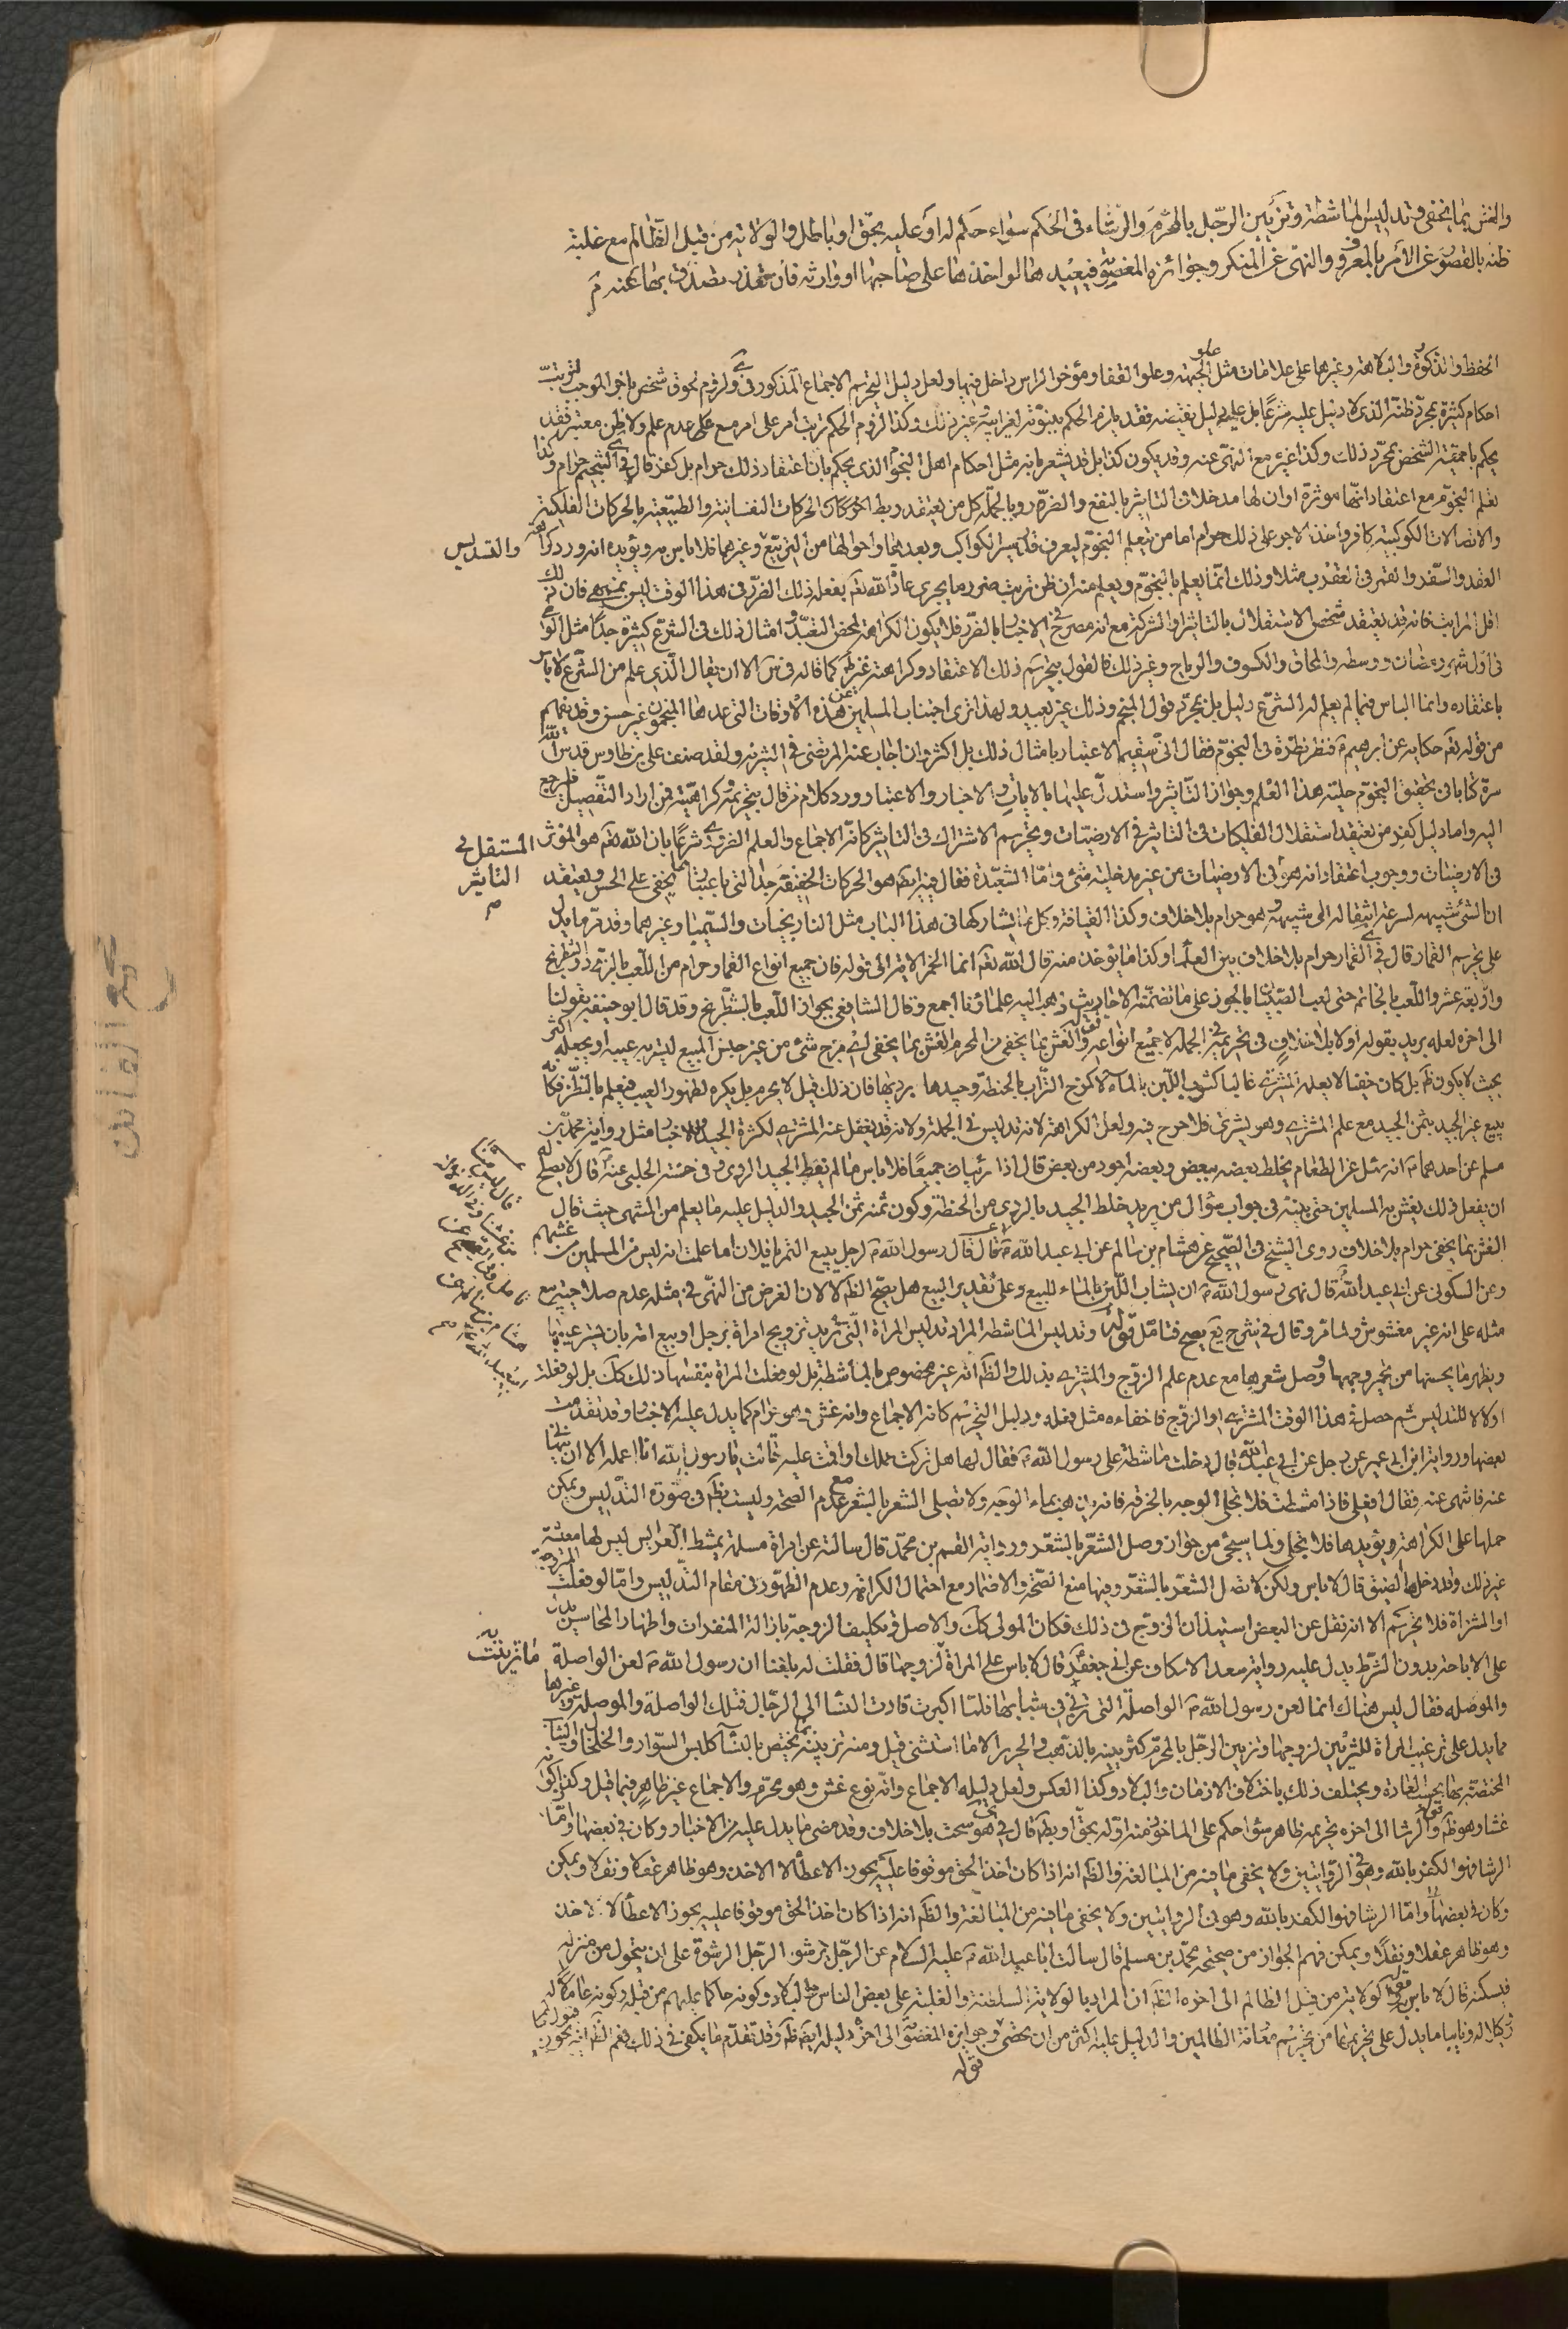 والغش بما يخفى وتدليس الماشطة وتزيين الرجل بالمحرم والرشاء فى الحكم سواء حكم له او عليه بحق او باطل والولاية من قبل الظالم مع غلبة
ظنه بالقصور عن الامر بالمعروف والنهى عن المنكر وجوائزه المغصوبة فيعيدها لو اخذها على صاحبها او وارثه فان تعذر تصدق بها عنه م
الحفظ والذكورة والبلاهة وغيرها على علامات مثل علو الجبهة وعلو القفا ومؤخر الراس داخل فيها ولعل دليل التحريم الاجماع المذكور فى
احكام كثيرة بمجرد ظنه الذى لا دليل عليه شرعا بل عليه دليل نقيضه فقد يلزم الحكم
يحكم باحمقية الشخص بمجرد ذلك وكذا غيره مع النهى عنه وقد يكون كذا بل قد يشعر بانه مثل احكام اهل النجوم الذى يحكم بان اعتقاد ذلك حرام بل كفر قال فى التنجيم حرام وكذا
تعلم النجوم مع اعتقاد انها مؤثرة او ان لها مدخلا فى التاثير بالنفع والضرر وبالجملة كل من يعتقد ربط الحركات النفسانية والطبيعية بالحركات الفلكية
والاتصالات الكوكبية كافر واخذ الاجر على ذلك حرام اما من يتعلم النجوم ليعرف قدر سير الكواكب وبعدها واحوالها من التربيع وغيرهما فلا باس به ويؤيده انه ورد كراهة
والتسديس
العقد والسفر والقمر فى العقرب مثلا وذلك انما يعلم بالنجوم ويعلم منه ان ظن ترتب ضرر ما يجرى عادة الله تعالى بفعله ذلك الضرر فى هذا الوقت ليس بمنهى فان ذلك
اقل المراتب فانه قد يعتقد شخص الاستقلال بالتاثير او الشركة مع انه مصرح فى الاخبار بالضرر فلا يكون الكراهة لمحض التعبد وامثال ذلك فى الشرع كثيرة جدا مثل
فى اول شهر رمضان ووسطه والمحاق والكسوف والرياح وغير ذلك فالقول بتحريم ذلك الاعتقاد وكراهته غير ظم كما قاله فى س الا ان يقال الذى علم من الشرع لا باس
باعتقاده وانما الباس فيما لم يعلم له الشرع دليل بل بمجرد قول المنجم وذلك غير بعيد ولهذا ترى اجتناب المسلمين عن هذه الاوقات التى عدها المنجمون غير حسن وقد يفهم
من قوله تعم حكاية عن ابرهيم م فنظر نظرة فى النجوم فقال انى سقيم الاعتبار بامثال ذلك بل اكثر وان اجاب عنه المرتضى فى التنزيه ولقد صنف على بن طاوس قدس الله
سره كتابا فى تحقيق النجوم حلية هذا العلم وجواز التاثير واستدل عليها بالايات والاخبار والاعتبار ورد كلام من قال بتحريمه وكراهيته فمن اراد التفصيل فليرجع
اليه واما دليل كفر من يعتقد استقلال الفلكيات فى التاثير فى الارضيات وتحريم الاشتراك فى التاثير كانه الاجماع والعلم الضرورى شرعا بان الله تعم هو المؤثر
المستقل فى التاثير م
فى الارضيات ووجوب اعتقاد انه هو فى الارضيات من غير مدخلية شئ واما الشعبدة فقال فيه ايضا هو الحركات الخفيفة جدا التى باعتبارها يخفى على الحس ويعتقد
ان الشئ شبيهه لسرعة انتقاله الى شبيهه وهو حرام بلا خلاف وكذا القيافة وكل ما يشاركها فى هذا الباب مثل النارنجيات والسيميا وغيرهما وقد مر ما يدل
على تحريم القمار قال فى القمار حرام بلا خلاف بين العلماء وكذا ما يؤخذ منه قال الله تعم انما الخمر الاية الى قوله فان جميع انواع القمار حرام من اللعب بالنرد والشطرنج
واربعة عشر واللعب بالخاتم حتى لعب الصبيان بالجوز على ما تضمنته الاحاديث ذهب اليه علماؤنا اجمع وقال الشافعى يجوز اللعب بالشطرنج وقد قال ابو حنيفة بقولنا
الى اخره لعله يريد بقوله اولا بلا خلاف فى تحريمه فى الجملة لا جميع انواعه قوله والغش بما يخفى من المحرم الغش بما يخفى اى مزج شئ من غير جنس المبيع ليستر به عيبه او يجعله اكثر
بحيث لا يكون ظم بل كان خفيا لا يعلمه المشترى غالبا كشوب اللبن بالماء لا كمزج التراب بالحنطة وجيدها برديها فان ذلك قيل لا يحرم بل يكره لظهور العيب فيعلم بالنظر فكانه
يبيع غير الجيد بثمن الجيد مع علم المشترى وهو يشترى فلا حرج فيه ولعل الكراهة لانه تدليس فى الجملة ولانه قد يغفل عنه المشترى لكثرة الجيد وللاخبار مثل رواية محمد بن
مسلم عن احدهما م انه سئل عن الطعام يخلط بعضه ببعض وبعضه اجود من بعض قال اذا رئيا جميعا فلا باس ما لم يغط الجيد الردى وفى حسنة الحلبى عنه قال لا يصلح له
ان يفعل ذلك يغش به المسلمين حتى يبينه فى جواب سؤال من يريد خلط الجيد بالردى من الحنطة وكون ثمنه ثمن الجيد والدليل عليه ما يعلم من المنتهى حيث قال
الغش بما يخفى حرام بلا خلاف روى الشيخ فى الصحيح عن هشام بن سالم عن ابى عبد الله م قال قال رسول الله م لرجل يبيع التمر يا فلان اما علمت انه ليس من المسلمين من غشهم
وعن السكونى عن ابى عبد الله قال نهى رسول الله م ان يشاب اللبن بالماء للبيع وعلى تقدير البيع هل يصح الظم لا لان الغرض من النهى فى مثله عدم صلاحية بيع
مثله على انه غير مغشوش ولما مر وقال فى شرح يع يصح فتامل قوله وتدليس الماشطة المراد تدليس المراة التى تريد تزويج امراة برجل او بيع امة بان يستر عيبها
ويظهر ما يحسنها من تحمير وجهها ووصل شعرها مع عدم علم الزوج والمشترى بذلك والظم انه غير مخصوص بالماشطة بل لو فعلت المراة بنفسها ذلك كك بل لو فعلته
اولا لا للتدليس ثم حصل فى هذا الوقت المشترى او الزوج فاخفاءه مثل فعله ودليل التحريم كانه الاجماع وانه غش وهو حرام كما يدل عليه الاخبار وقد تقدمت
بعضها ورواية ابن ابى عمير عن رجل عن ابى عبد الله قال دخلت ماشطة على رسول الله م فقال لها هل تركت عملك او اقمت عليه قالت يا رسول الله انا اعمله الا ان تنهانى
عنه فانتهى عنه فقال افعلى فاذا مشطت فلا تجلى الوجه بالخرقة فانه يذهب بماء الوجه ولا تصلى الشعر بالشعر مع عدم الصحة وليست بظم فى صورة التدليس ويمكن
حملها على الكراهة ويؤيدها فلا تجلى ولما سيجئ من جواز وصل الشعر بالشعر ورواية القسم بن محمد قال سالته عن امراة مسلمة تمشط العرايس ليس لها معيشة
غير ذلك وقد دخلها الضيق قال لا باس ولكن لا تصل الشعر بالشعر وفيها منع الصحة والاضمار مع احتمال الكراهة وعدم الظهور فى مقام التدليس واما لو فعلت
او المشتراة فلا تحريم الا انه نقل عن البعض استيذان الزوج فى ذلك فكان المولى كك والاصل وتكليف الزوجة بازالة المنفرات واظهار المحاسن
على الاباحة بدون الشرط يدل عليه رواية سعد الاسكاف عن ابى جعفر قال لا باس على المراة بما تزينت به لزوجها قال فقلت له بلغنا ان رسول الله م لعن الواصلة
والموصلة فقال ليس هناك انما لعن رسول الله م الواصلة التى تزنى فى شبابها فلما اكبرت قادت النساء الى الرجال فتلك الواصلة والموصلة وغيرها
مما يدل على ترغيب المراة للتزيين لزوجها وتزيين الرجل بالمحرم كتزيينه بالذهب والحرير الا ما استثنى قيل ومنه تزيينه بما يختص بالنساء كلبس السوار والخلخال والثياب
المختصة بها بحسب العادة ويختلف ذلك باختلاف الازمان والبلاد وكذا العكس ولعل دليله الاجماع وانه نوع غش وهو محرم والاجماع غير ظاهر فيما قيل وكذا كونه
غشا وهو ظم قوله والرشا الى اخره تحريمه ظاهر سواء حكم على الماخوذ منه او له بحق او بطم قال فى هو سحت بلا خلاف وقد مضى ما يدل عليه من الاخبار وكان فى بعضها واما
الرشا فهو الكفر بالله وهو فى الروايتين ولا يخفى ما فيه من المبالغة والظم انه اذا كان اخذ الحق موقوفا عليه يجوز الاعطاء لا الاخذ وهو ظاهر عقلا ونقلا ويمكن
وكان فى بعضها واما الرشا فهو الكفر بالله وهو فى الروايتين ولا يخفى ما فيه من المبالغة والظم انه اذا كان اخذ الحق موقوفا عليه يجوز الاعطاء لا الاخذ
وهو ظاهر عقلا ونقلا ويمكن فهم الجواز من صحيحة محمد بن مسلم قال سالت ابا عبد الله م عليه السلام عن الرجل يرشو الرجل الرشوة على ان يتحول من منزله
فيسكنه قال لا باس قوله كولاية من قبل الظالم الى اخره الظم ان المراد بالولاية السلطنة والغلبة على بعض الناس والبلاد وكونه حاكما عليهم من قبله وكونه عاملا له
وكلا له ونايبا ما يدل على تحريمها من تحريم معانة الظالمين والدليل عليه اكثر من ان يحصى قوله وجوايزه المغصوبة الى اخره دليله ايضا ظم وقد تقدم ما يكفى فى ذلك نعم الظم انه يجوز
قوله